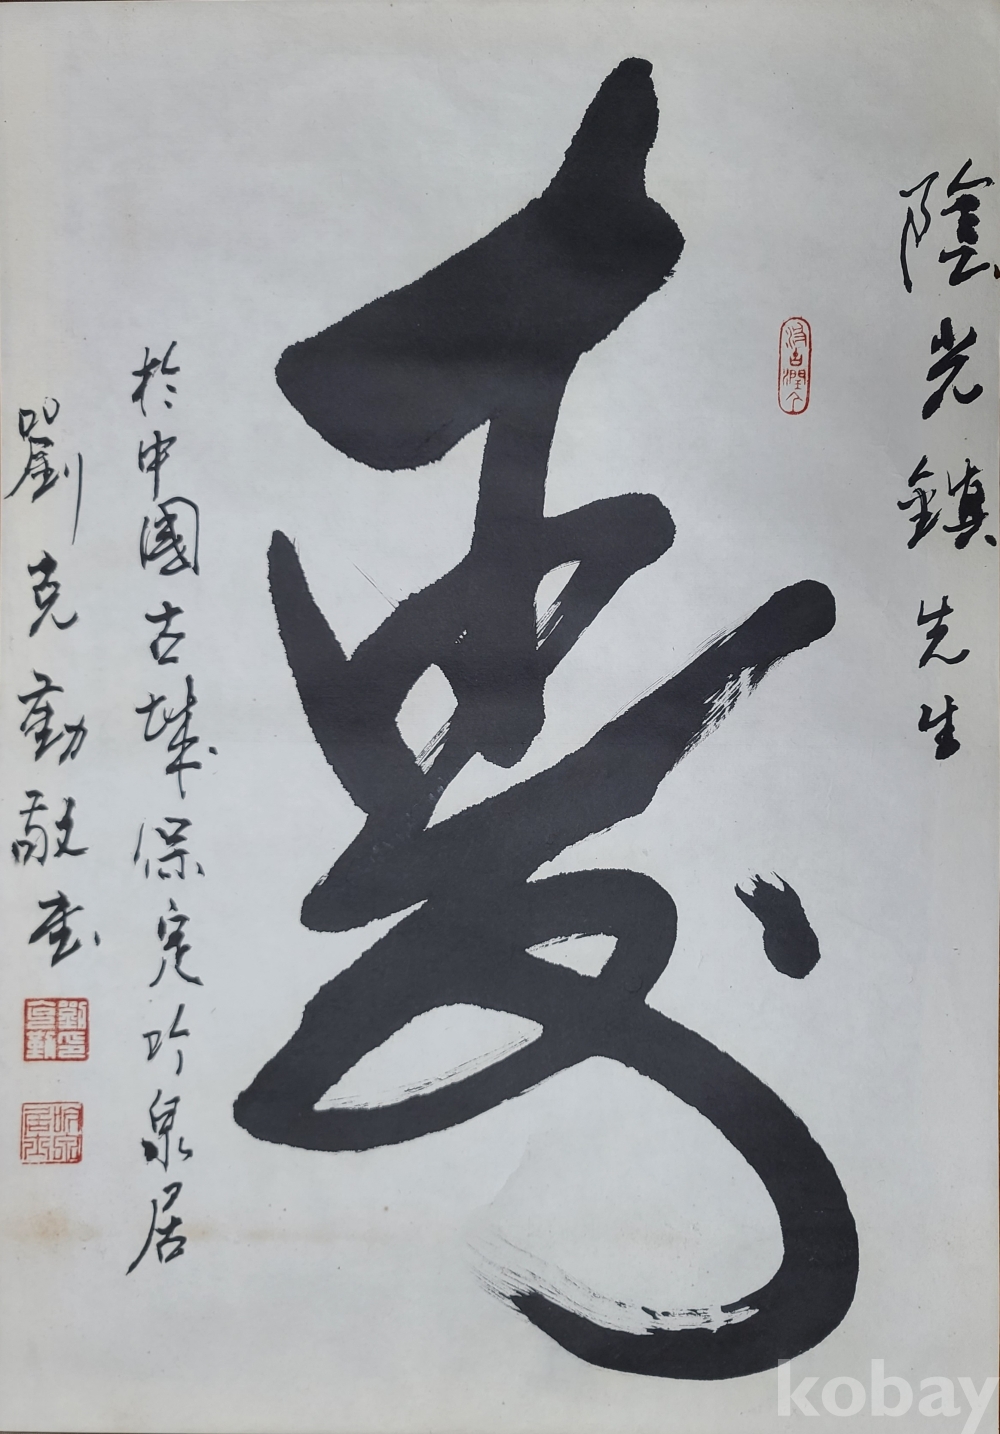 陰光鎮先生
壽
於中國古城保定吟泉居
劉克勤敬書
kobay